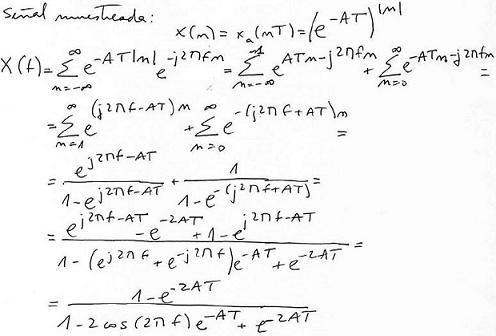 Señal muestreada:
x(n) = x_a(nT) = (e^{-AT})^{|n|}
X(f) = \sum_{n=-∞}^{∞} e^{-AT|n|} e^{-j2πfn} = \sum_{n=-∞}^{-1} e^{ATn-j2πfn} + \sum_{n=0}^{∞} e^{-ATn-j2πfn} =
= \sum_{n=1}^{∞} e^{(j2πf-AT)n} + \sum_{n=0}^{∞} e^{-(j2πf+AT)n} =
= \frac{e^{j2πf-AT}}{1-e^{j2πf-AT}} + \frac{1}{1-e^{-(j2πf+AT)}} =
= \frac{e^{j2πf-AT} - e^{-2AT} + 1 - e^{j2πf-AT}}{1-(e^{j2πf}+e^{-j2πf})e^{-AT}+e^{-2AT}} =
= \frac{1-e^{-2AT}}{1-2cos(2πf)e^{-AT}+e^{-2AT}}